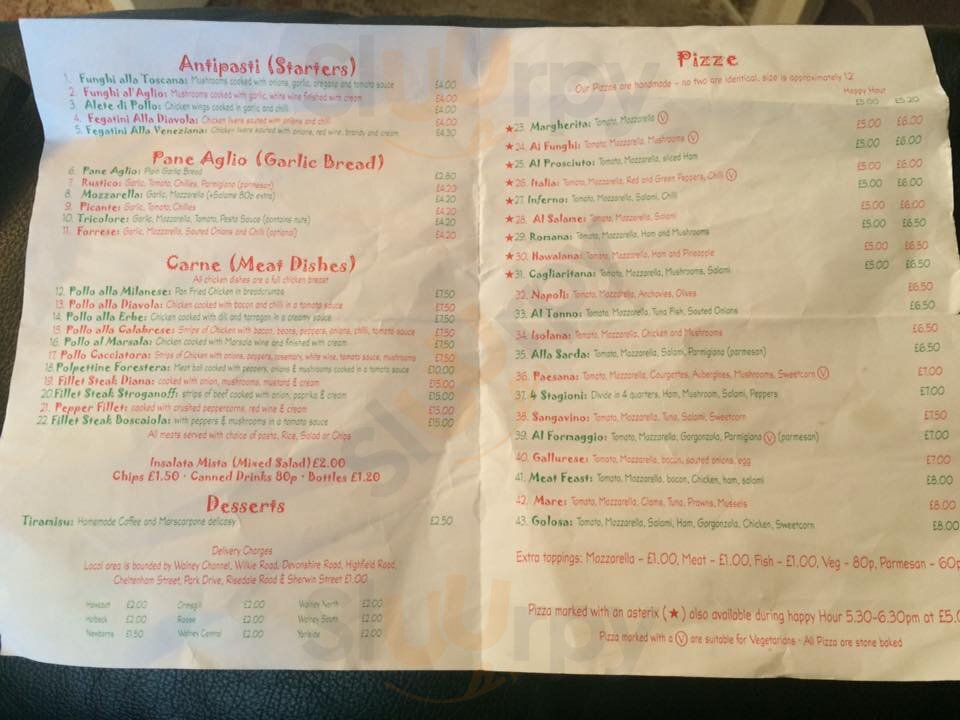 Antipasti (Starters)
1. Funghi alla Toscana: Mushrooms cooked with onions, garlic, oregano and tomato sauce £4.00
2. Funghi al'Aglio: Mushrooms cooked with garlic, white wine finished with cream £4.00
3. Alete di Pollo: Chicken wings cooked in garlic and chilli £4.00
4. Fegatini Alla Diavola: Chicken livers sauted with onions and chilli £4.00
5. Fegatini Alla Veneziana: Chicken livers sauted with onions, red wine, brandy and cream £4.30
Pane Aglio (Garlic Bread)
6. Pane Aglio: Plain Garlic Bread £2.80
7. Rustico: Garlic, Tomato, Chillies, Parmigiano (parmesan) £4.20
8. Mozzarella: Garlic, Mozzarella (+Salame 80p extra) £4.20
9. Picante: Garlic, Tomato, Chillies £4.20
10. Tricolore: Garlic, Mozzarella, Tomato, Pesto Sauce (contains nuts) £4.20
11. Forrese: Garlic, Mozzarella, Sauted Onions and Chilli (optional) £4.20
Carne (Meat Dishes)
All chicken dishes are a full chicken breast
12. Pollo alla Milanese: Pan Fried Chicken in breadcrumbs £7.50
13. Pollo alla Diavola: Chicken cooked with bacon and chilli in a tomato sauce £7.50
14. Pollo alla Erbe: Chicken cooked with dill and tarragon in a creamy sauce £7.50
15. Pollo alla Calabrese: Strips of Chicken with bacon, beans, peppers, onions, chilli, tomato sauce £7.50
16. Pollo al Marsala: Chicken cooked with Marsala wine and finished with cream £7.50
17. Pollo Cacciatora: Strips of Chicken with onions, peppers, rosemary, white wine, tomato sauce, mushrooms £7.50
18. Polpettine Forestera: Meat ball cooked with peppers, onions & mushrooms cooked in a tomato sauce £10.00
19. Fillet Steak Diana: cooked with onion, mushrooms, mustard & cream £15.00
20. Fillet Steak Stroganoff: strips of beef cooked with onion, paprika & cream £15.00
21. Pepper Fillet: cooked with crushed peppercorns, red wine & cream £15.00
22. Fillet Steak Boscaiola: with peppers & mushrooms in a tomato sauce £15.00
All meats served with choice of pasta, Rice, Salad or Chips
Insalata Mista (Mixed Salad) £2.00
Chips £1.50 · Canned Drinks 80p · Bottles £1.20
Desserts
Tiramisu: Homemade Coffee and Marscarpone delicasy £2.50
Delivery Charges
Local area is bounded by Walney Channel, Wilkie Road, Devonshire Road, Highfield Road,
Cheltenham Street, Park Drive, Risedale Road & Sherwin Street £1.00
Hawcoat £2.00 Ormsgill £2.00 Walney North £2.00
Holbeck £2.00 Roose £2.00 Walney South £2.00
Newbarns £1.50 Walney Central £2.00 Yarlside £2.00
Pizze
Our Pizzas are handmade - no two are identical, size is approximately 12"
Happy Hour
£5.00 £5.20
★23. Margherita: Tomato, Mozzarella (V) £5.00 £6.00
★24. Ai Funghi: Tomato, Mozzarella, Mushrooms (V) £5.00 £6.00
★25. Al Prosciuto: Tomato, Mozzarella, sliced Ham £5.00 £6.00
★26. Italia: Tomato, Mozzarella, Red and Green Peppers, Chilli (V) £5.00 £6.00
★27. Inferno: Tomato, Mozzarella, Salami, Chilli £5.00 £6.00
★28. Al Salame: Tomato, Mozzarella, Salami £5.00 £6.50
★29. Romana: Tomato, Mozzarella, Ham and Mushrooms £5.00 £6.50
★30. Hawaiana: Tomato, Mozzarella, Ham and Pineapple £5.00 £6.50
★31. Cagliaritana: Tomato, Mozzarella, Mushrooms, Salami
32. Napoli: Tomato, Mozzarella, Anchovies, Olives £6.50
33. Al Tonno: Tomato, Mozzarella, Tuna Fish, Sauted Onions £6.50
34. Isolana: Tomato, Mozzarella, Chicken and Mushrooms £6.50
35. Alla Sarda: Tomato, Mozzarella, Salami, Parmigiano (parmesan) £6.50
36. Paesana: Tomato, Mozzarella, Courgettes, Aubergines, Mushrooms, Sweetcorn (V) £7.00
37. 4 Stagioni: Divide in 4 quarters, Ham, Mushroom, Salami, Peppers £7.00
38. Sangavino: Tomato, Mozzarella, Tuna, Salami, Sweetcorn £7.50
39. Al Formaggio: Tomato, Mozzarella, Gorgonzola, Parmigiano (V) (parmesan) £7.00
40. Gallurese: Tomato, Mozzarella, bacon, sauted onions, egg £7.00
41. Meat Feast: Tomato, Mozzarella, bacon, Chicken, ham, salami £8.00
42. Mare: Tomato, Mozzarella, Clams, Tuna, Prawns, Mussels £8.00
43. Golosa: Tomato, Mozzarella, Salami, Ham, Gorgonzola, Chicken, Sweetcorn £8.00
Extra toppings: Mozzarella - £1.00, Meat - £1.00, Fish - £1.00, Veg - 80p, Parmesan - 60p
Pizza marked with an asterix (★) also available during happy Hour 5.30-6.30pm at £5.0
Pizza marked with a (V) are suitable for Vegetarians · All Pizza are stone baked
Sluurpy